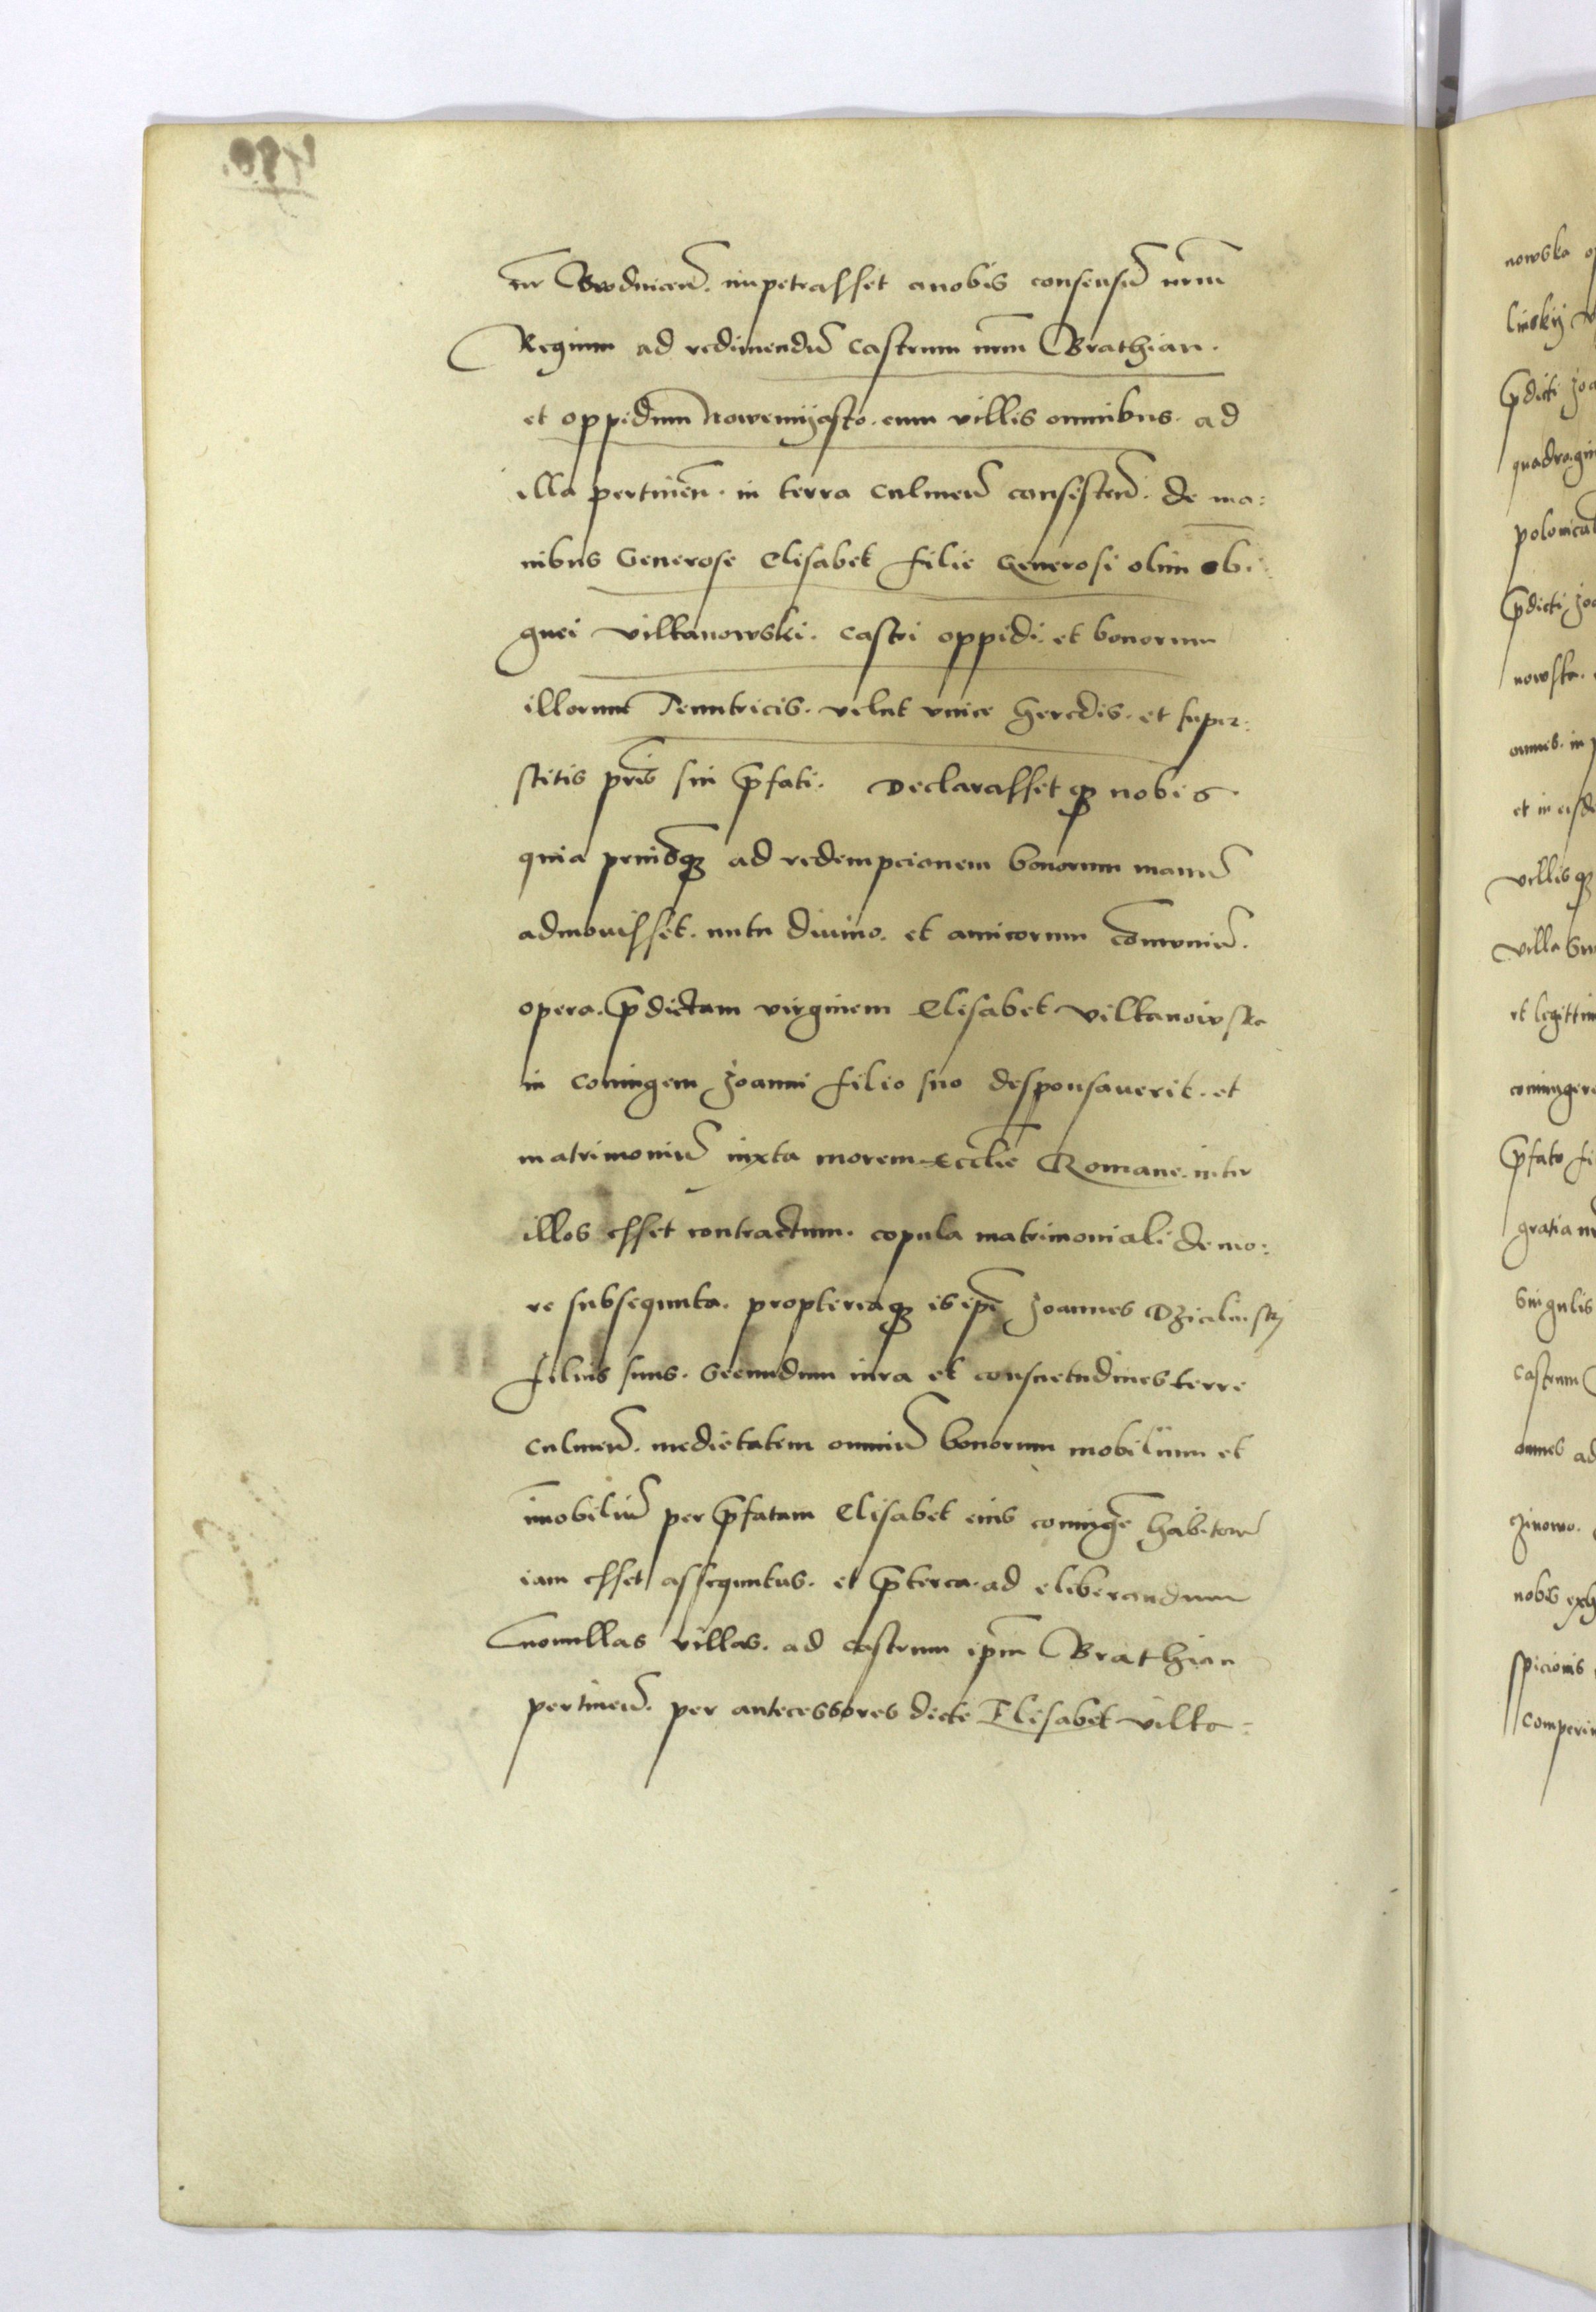 Bwdnicen̄. impetrasset a nobis consensū nrm̄
Regium ad redimendū castrum nrm̄ Brathian.
et oppidum Nowemyasto. cum villis omnibus. ad
illa pertinen̄. in terra culmen̄ consisten̄. de ma:
nibus Generose Elisabet filie Generosi olim sbi:
gnei vilkanowski. castri oppidi et bonorum
illorum Tenutricis. velut vnice heredis. et super:
stitis pris̄ sui p̄fati. Declarassetq̨ nobis.
quia priusq̨ ad redempcionem bonorum manū
admouisset. nutu diuino. et amicorum cōmuniū.
opera. p̄dictam virginem Elisabet vilkanowska
in coniugem Joanni filio suo desponsauerit. et
matrimoniū iuxta morem Eccl̄ie Romane. inter
illos esset contractum. copula matrimoniali de mo:
re subsequuta. proptereaq̨ is ip̄e Joannes Dzialinskj
filius suus. secundum iura et consuetudines terre
culmen̄. medietatem omniū bonorum mobilium et
im̄obiliū per p̄fatam Elisabet eius coniugē habitorū
iam esset assequutus. et p̄terea. ad eliberandum
nonnullas villas. ad castrum ipm̄ Brathian
pertinen̄. per antecessores dicte Elisabet vilka:
nowska
linskij
p̄dicti Joa
quadragin
polonical
p̄dicti Joa
nowska.
omnes. in
et in eisde
villisq̨
villa
et legittim
coniugere
p̄fato fi
gratia
singulis
castrum
omnes ad
nobis exh
spicionis
comperi